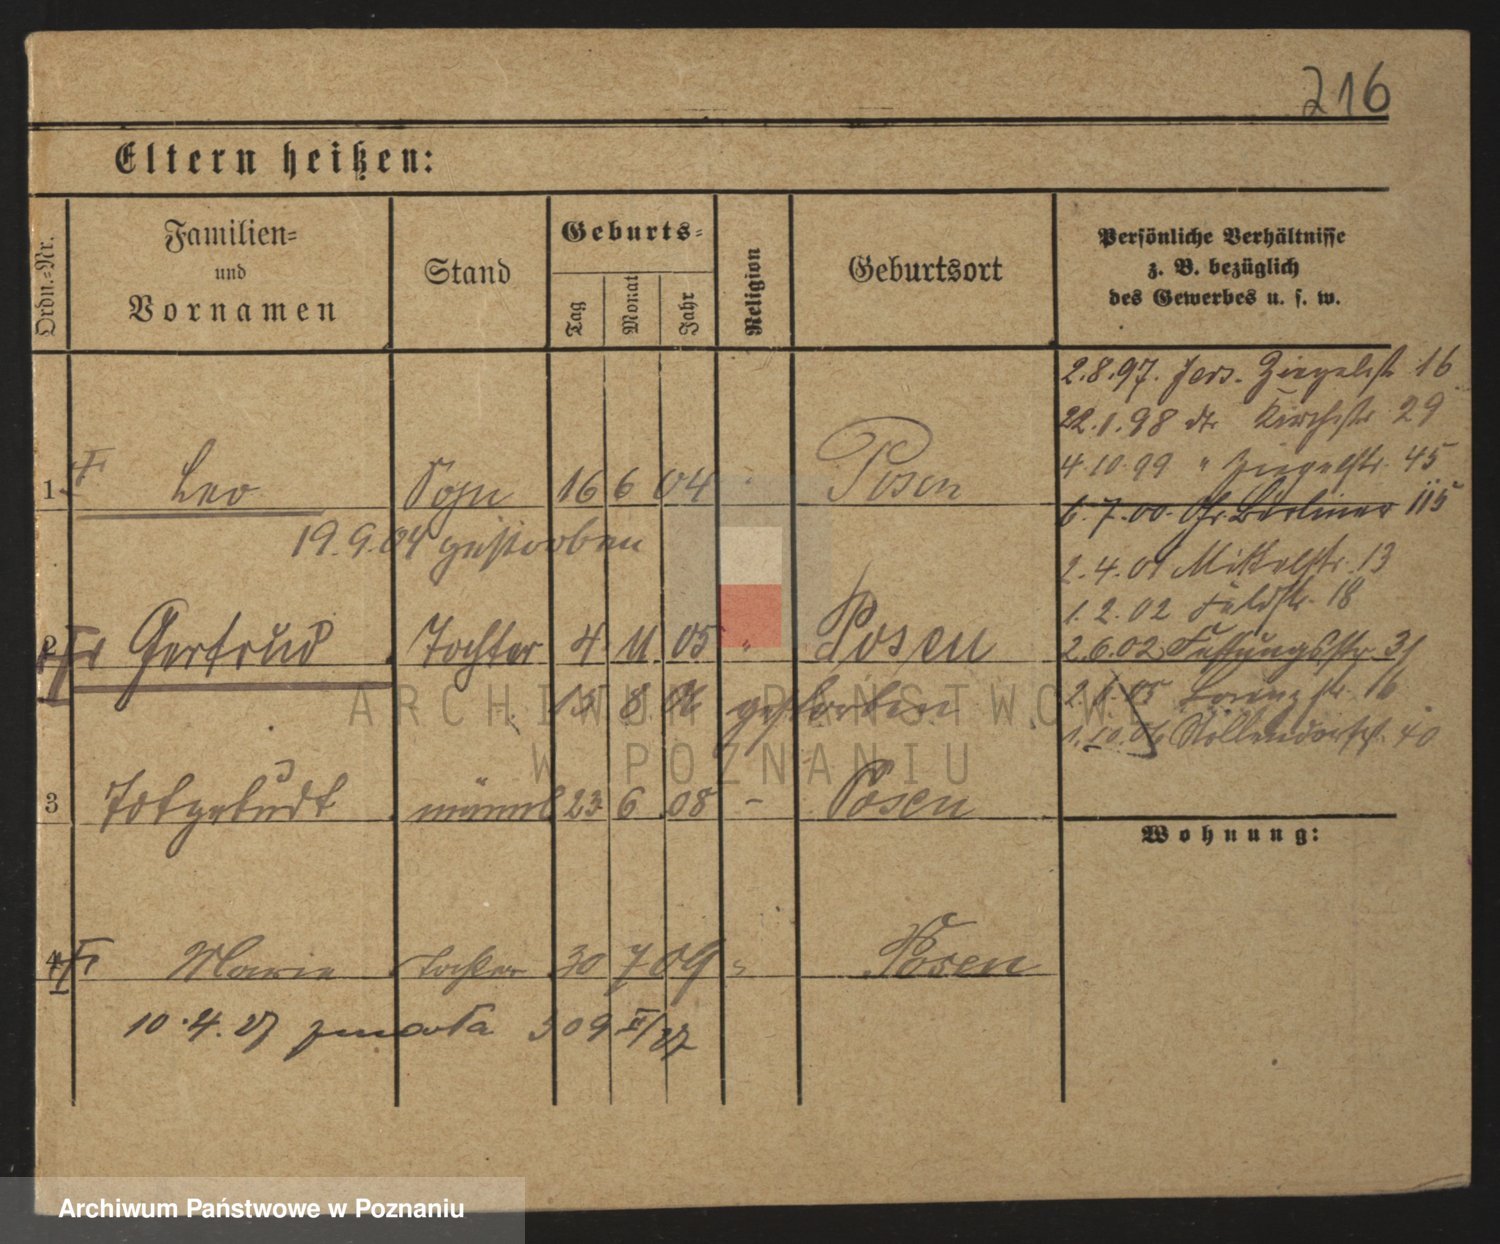 216
Eltern heißen:
Ordn.-Nr.
Familien-
und
Vornamen
Stand
Geburts-
Tag
Monat
Jahr
Religion
Geburtsort
Persönliche Verhältnisse
z. B. bezüglich
des Gewerbes u. s. w.
2.8.97. Jers. Ziegelstr. 16
22.1.98 dto Kirchstr. 29
4.10.99 " Ziegelstr. 45
6.7.00. Gr. Berliner 115
2.4.01 Mittelstr. 13
1.2.02 Feldstr. 18
2.6.02 Festungsstr. 31
2.1.05 16
1.10.06 Nollendorfstr. 40
1 Leo Sohn 16 6 04 Posen
19.9.04 gestorben
2 Gertrud Tochter 4 11 05 " Posen
15 8 gestorben
3 Totgeburt männl 23 6 08 - Posen
4 Marie Tochter 30 7 09 Posen
10.4.27 zmarła 509 II/27
Wohnung:
ARCHIWUM PAŃSTWOWE
W POZNANIU
Archiwum Państwowe w Poznaniu